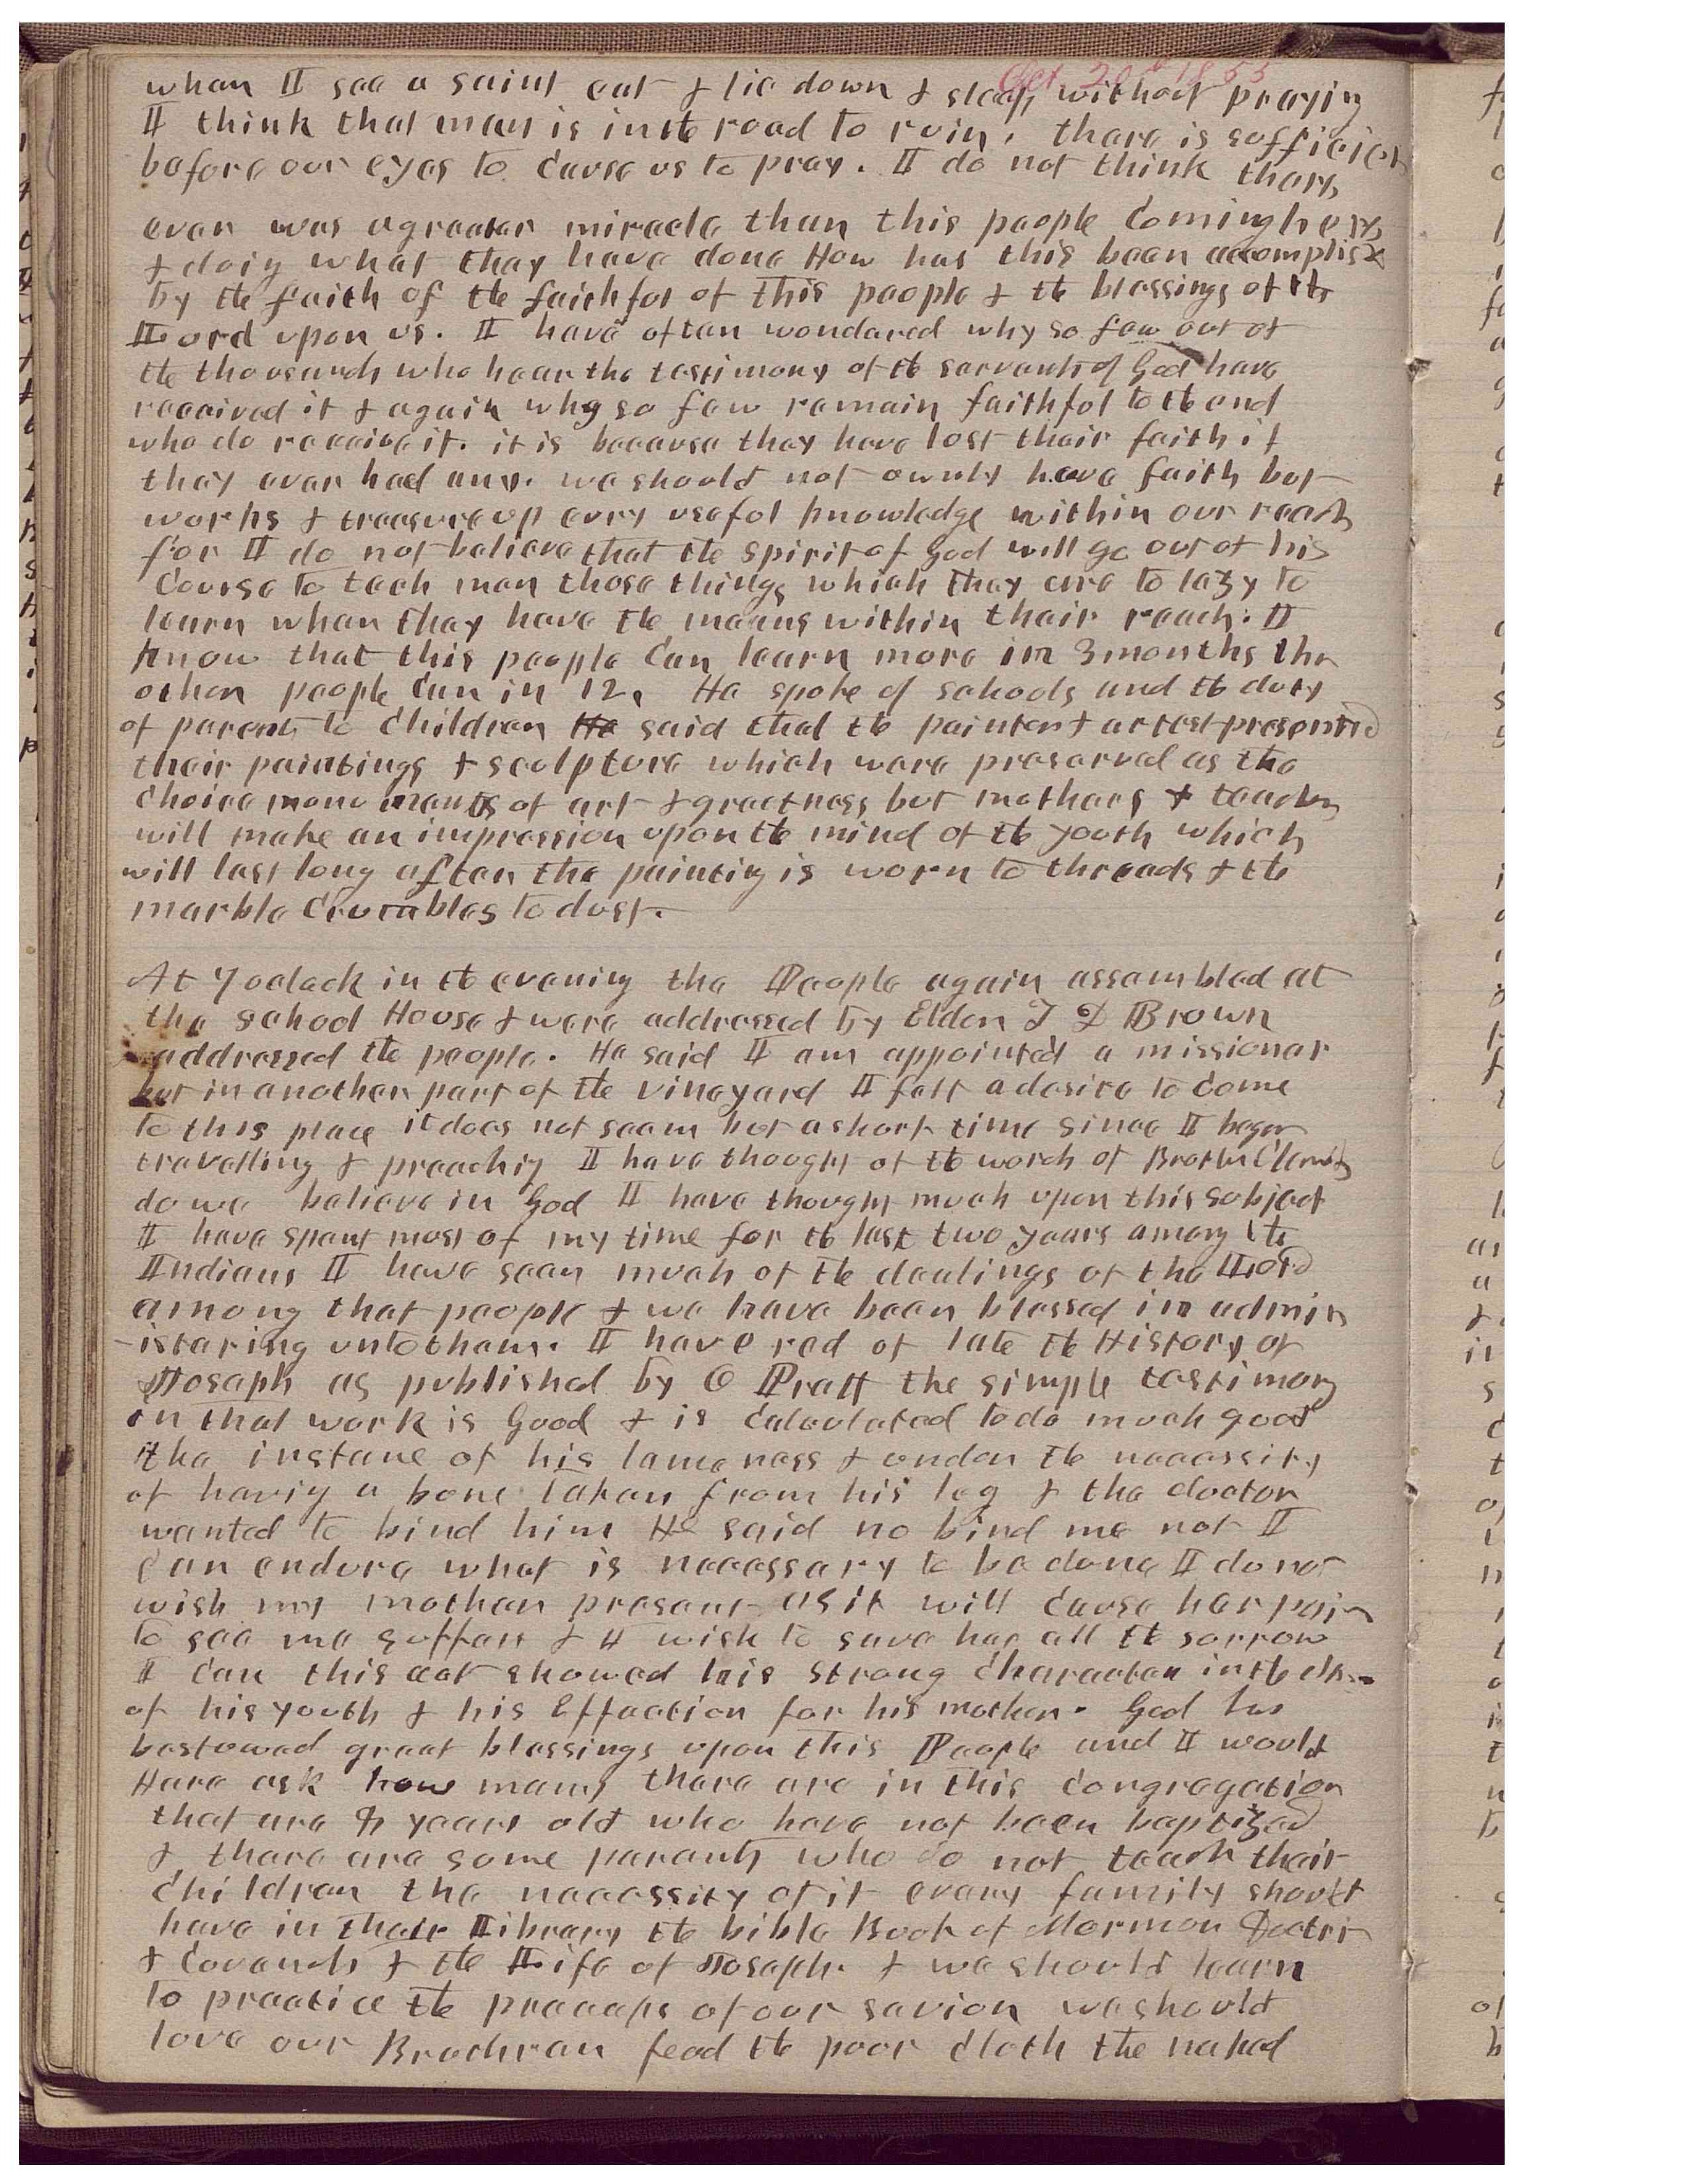 Oct. 20th 1855
when I see a saint eat & lie down & sleep without praying
I think that man is in the road to ruin, there is sufficient
before our eyes to cause us to pray. I do not think there
ever was a greater miracle than this people coming here
& doing what they have done How has this been accomplish
by the faith of the faithful of this people & the blessings of the
Lord upon us. I have often wondered why so few out of
the thousands who hear the testimony of the servants of God have
received it & again why so few remain faithful to the end
who do receive it. it is because they have lost their faith if
they ever had any. we should not ownly have faith but
works & treasure up evry useful knowledge within our reach
for I do not believe that the spirit of God will go out of his
course to teach men those things which they are to lazy to
learn when they have the means within their reach. I
know that this people can learn more in 3 months the
other people can in 12, He spoke of schools and the duty
of parents to children He said that the painter & artest presented
their paintings & sculpture which were preserved as the
choice monuments of art & greatness but mothers & teachers
will make an impression upon the mind of the youth which
will last long after the painting is worn to threads & the
marble crumbles to dust.
At 7 oclock in the evening the People again assembled at
the school House & were addressed by Elder T D Brown
addressed the people. He said I am appointed a missionar
but in another part of the vineyard I felt a desire to come
to this place it does not seem but a short time since I began
travelling & preaching I have thought of the words of Brother Clements
do we believe in God I have thought much upon this subject
I have spent most of my time for the last two years among the
Indians I have seen much of the dealings of the Lord
among that people & we have been blessed in admin
-istering unto them. I have red of late the History of
Joseph as published by O Pratt the simple testimony
in that work is Good & is calculated to do much good
the instane of his lameness & under the necessity
of having a bone taken from his leg & the doctor
wanted to bind him He said no bind me not I
can endure what is necessary to be done I do not
wish my mother present as it will cause her pain
to see me suffer & I wish to save her all the sorrow
I can this act showed his strong character in the
of his youth & his Effection for his mother. God has
bestowed great blessings upon this People and I would
Here ask how many there are in this congregation
that are 8 years old who have not been baptized
& there are some parents who do not teach their
children the necessity of it evary family should
have in their Library the bible Book of Mormon Doctri
& Covenants & the Life of Joseph. & we should learn
to practice the precepts of our savior we should
love our Brethren feed the poor cloth the naked